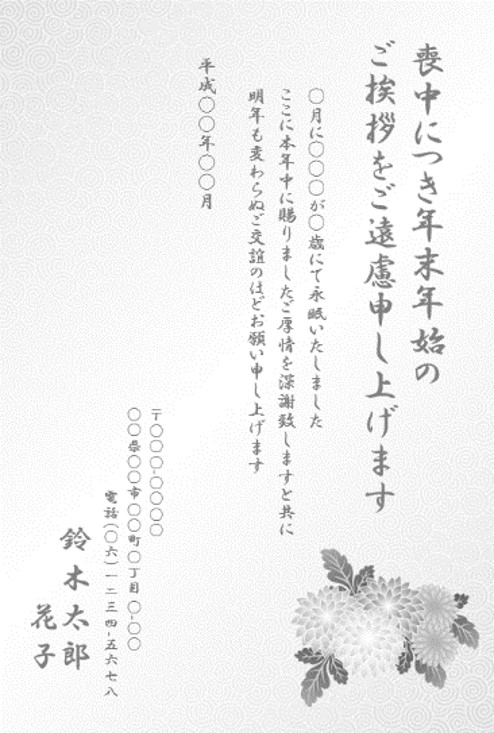 喪中につき年末年始の
ご挨拶をご遠慮申し上げます
〇月に〇〇〇が〇歳にて永眠いたしました
ここに本年中に賜りましたご厚情を深謝致しますと共に
明年も変わらぬご交誼のほどお願い申し上げます
平成〇〇年〇〇月
〒〇〇〇-〇〇〇〇
〇〇県〇〇市〇〇町〇丁目〇-〇〇
電話(〇六)一二三四-五六七八
鈴木太郎
花子